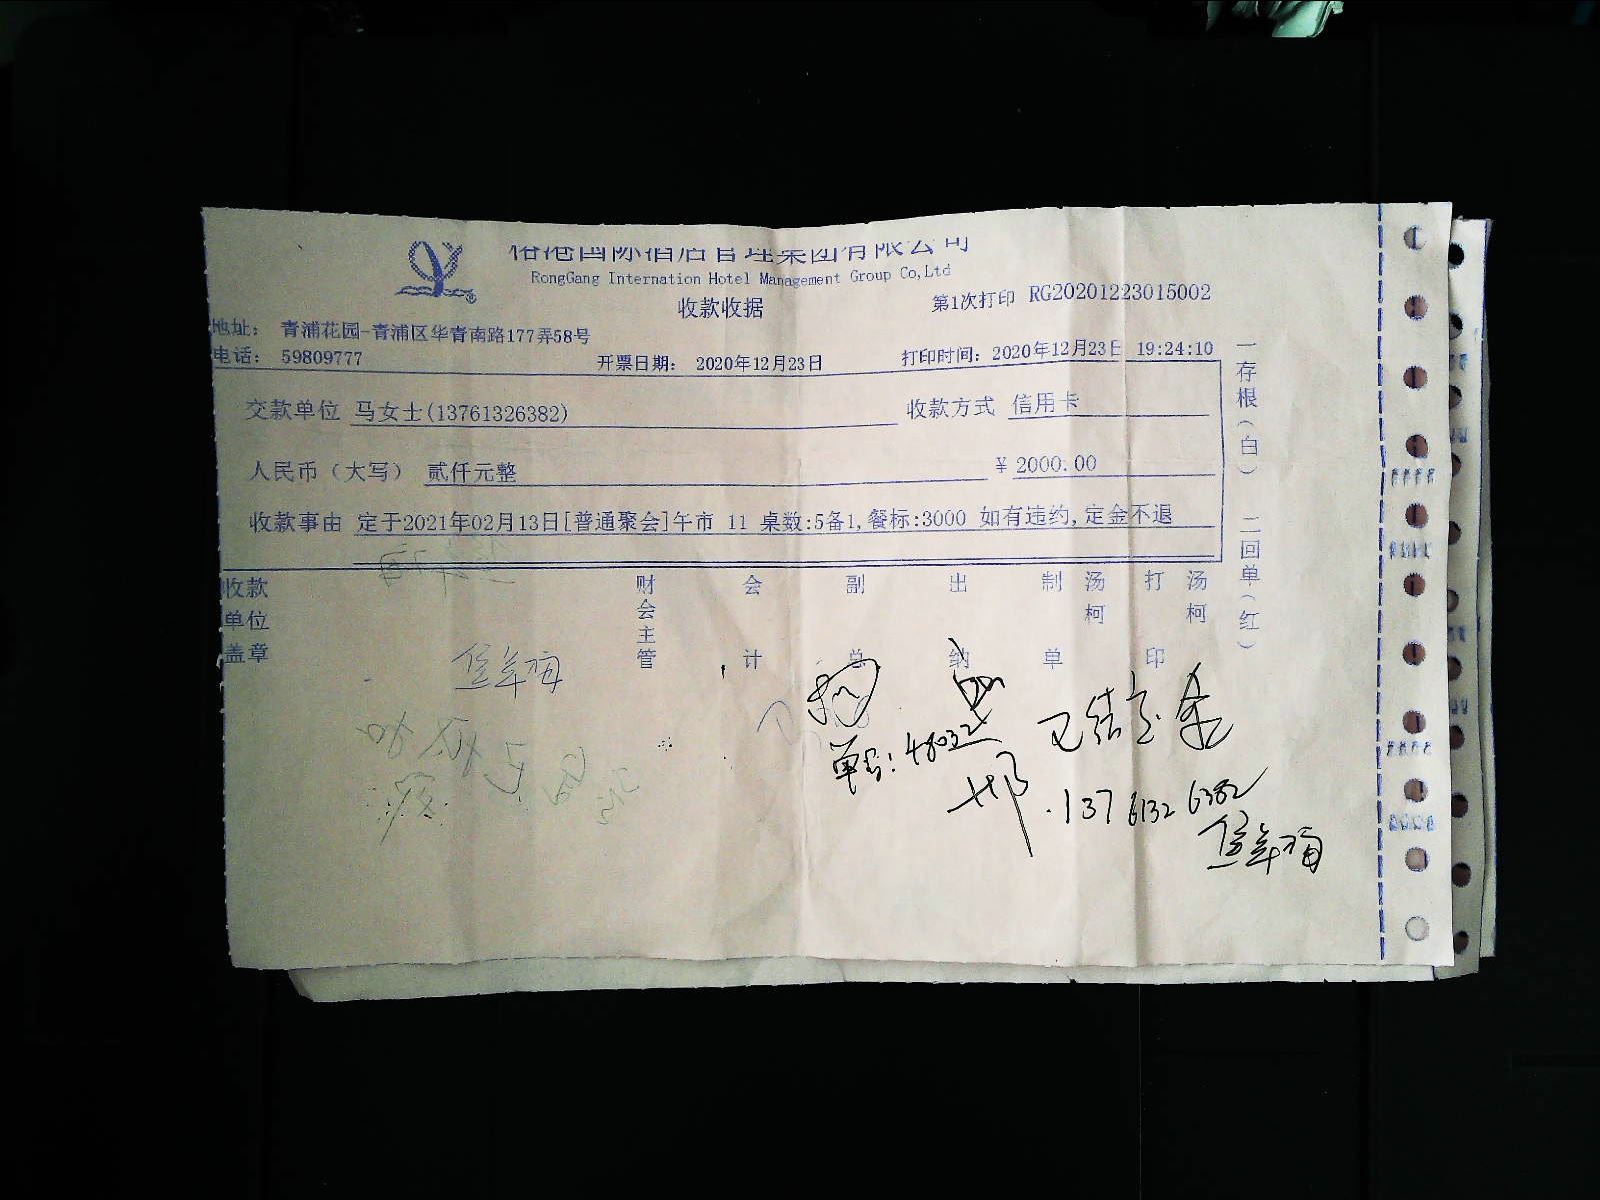 国际酒店管理集团有限公司
RongGang Internation Hotel Management Group Co,Ltd
收款收据
第1次打印 RG20201223015002
地址： 青浦花园-青浦区华青南路177弄58号
电话： 59809777 开票日期： 2020年12月23日 打印时间：2020年12月23日 19:24:10
交款单位 马女士(13761326382) 收款方式 信用卡
人民币（大写） 贰仟元整 ￥ 2000.00
收款事由 定于2021年02月13日[普通聚会]午市 11 桌数:5备1,餐标:3000 如有违约,定金不退
收款单位盖章 财会主管 会计 副总 出纳 制单 汤柯 打印 汤柯
一存根（白） 二回单（红）
单号:48032
已结
137 6132 6382